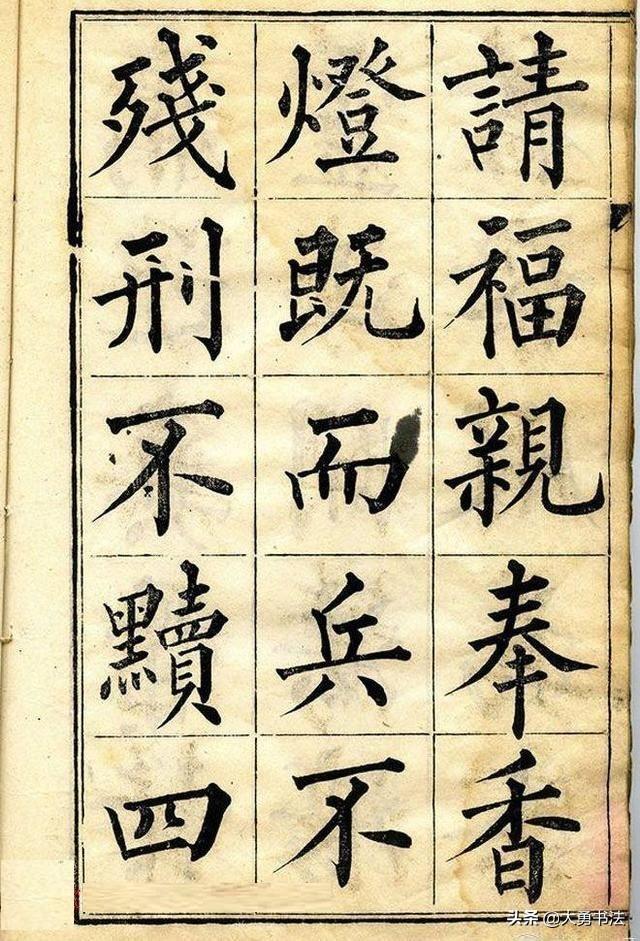 請福親奉香
燈既而兵不
殘刑不黷四
头条 @大勇书法